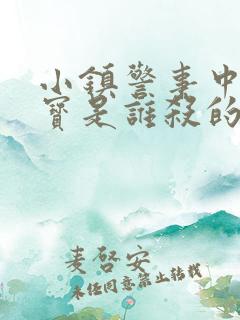 小鎮警事中
寳是誰殺的
麦啓安
未任同意禁止轉載